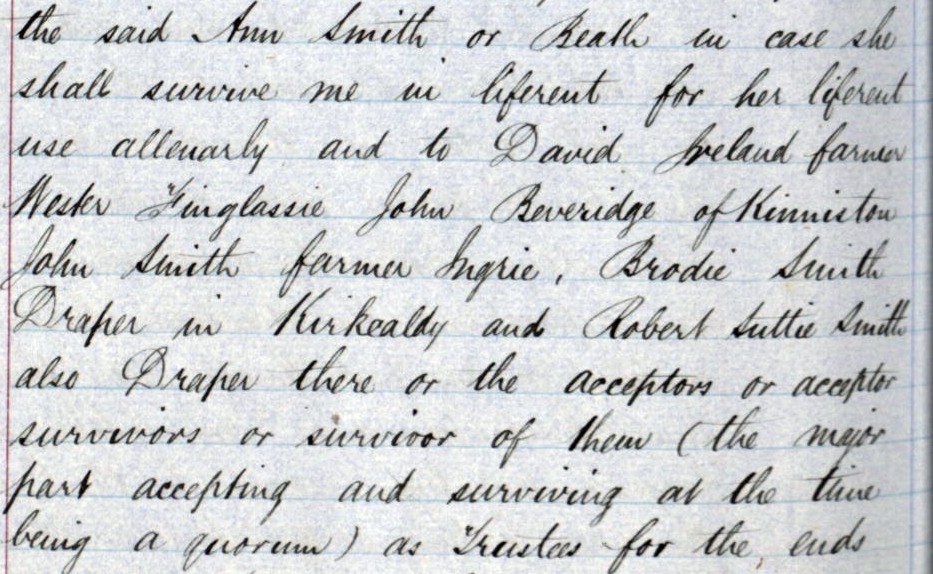 the said Ann Smith or Beath in case she
shall survive me in liferent for her liferent
use allenarly and to David Ireland farmer
Wester Finglassie John Beveridge of Kinniston
John Smith farmer Ingrie, Brodie Smith
Draper in Kirkcaldy and Robert Suttie Smith
also Draper there or the acceptors or acceptor
survivors or survivor of them (the major
part accepting and surviving at the time
being a quorum) as Trustees for the ends